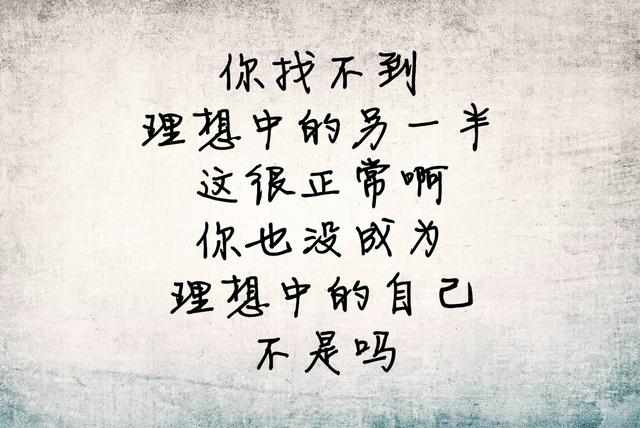 你找不到
理想中的另一半
这很正常啊
你也没成为
理想中的自己
不是吗